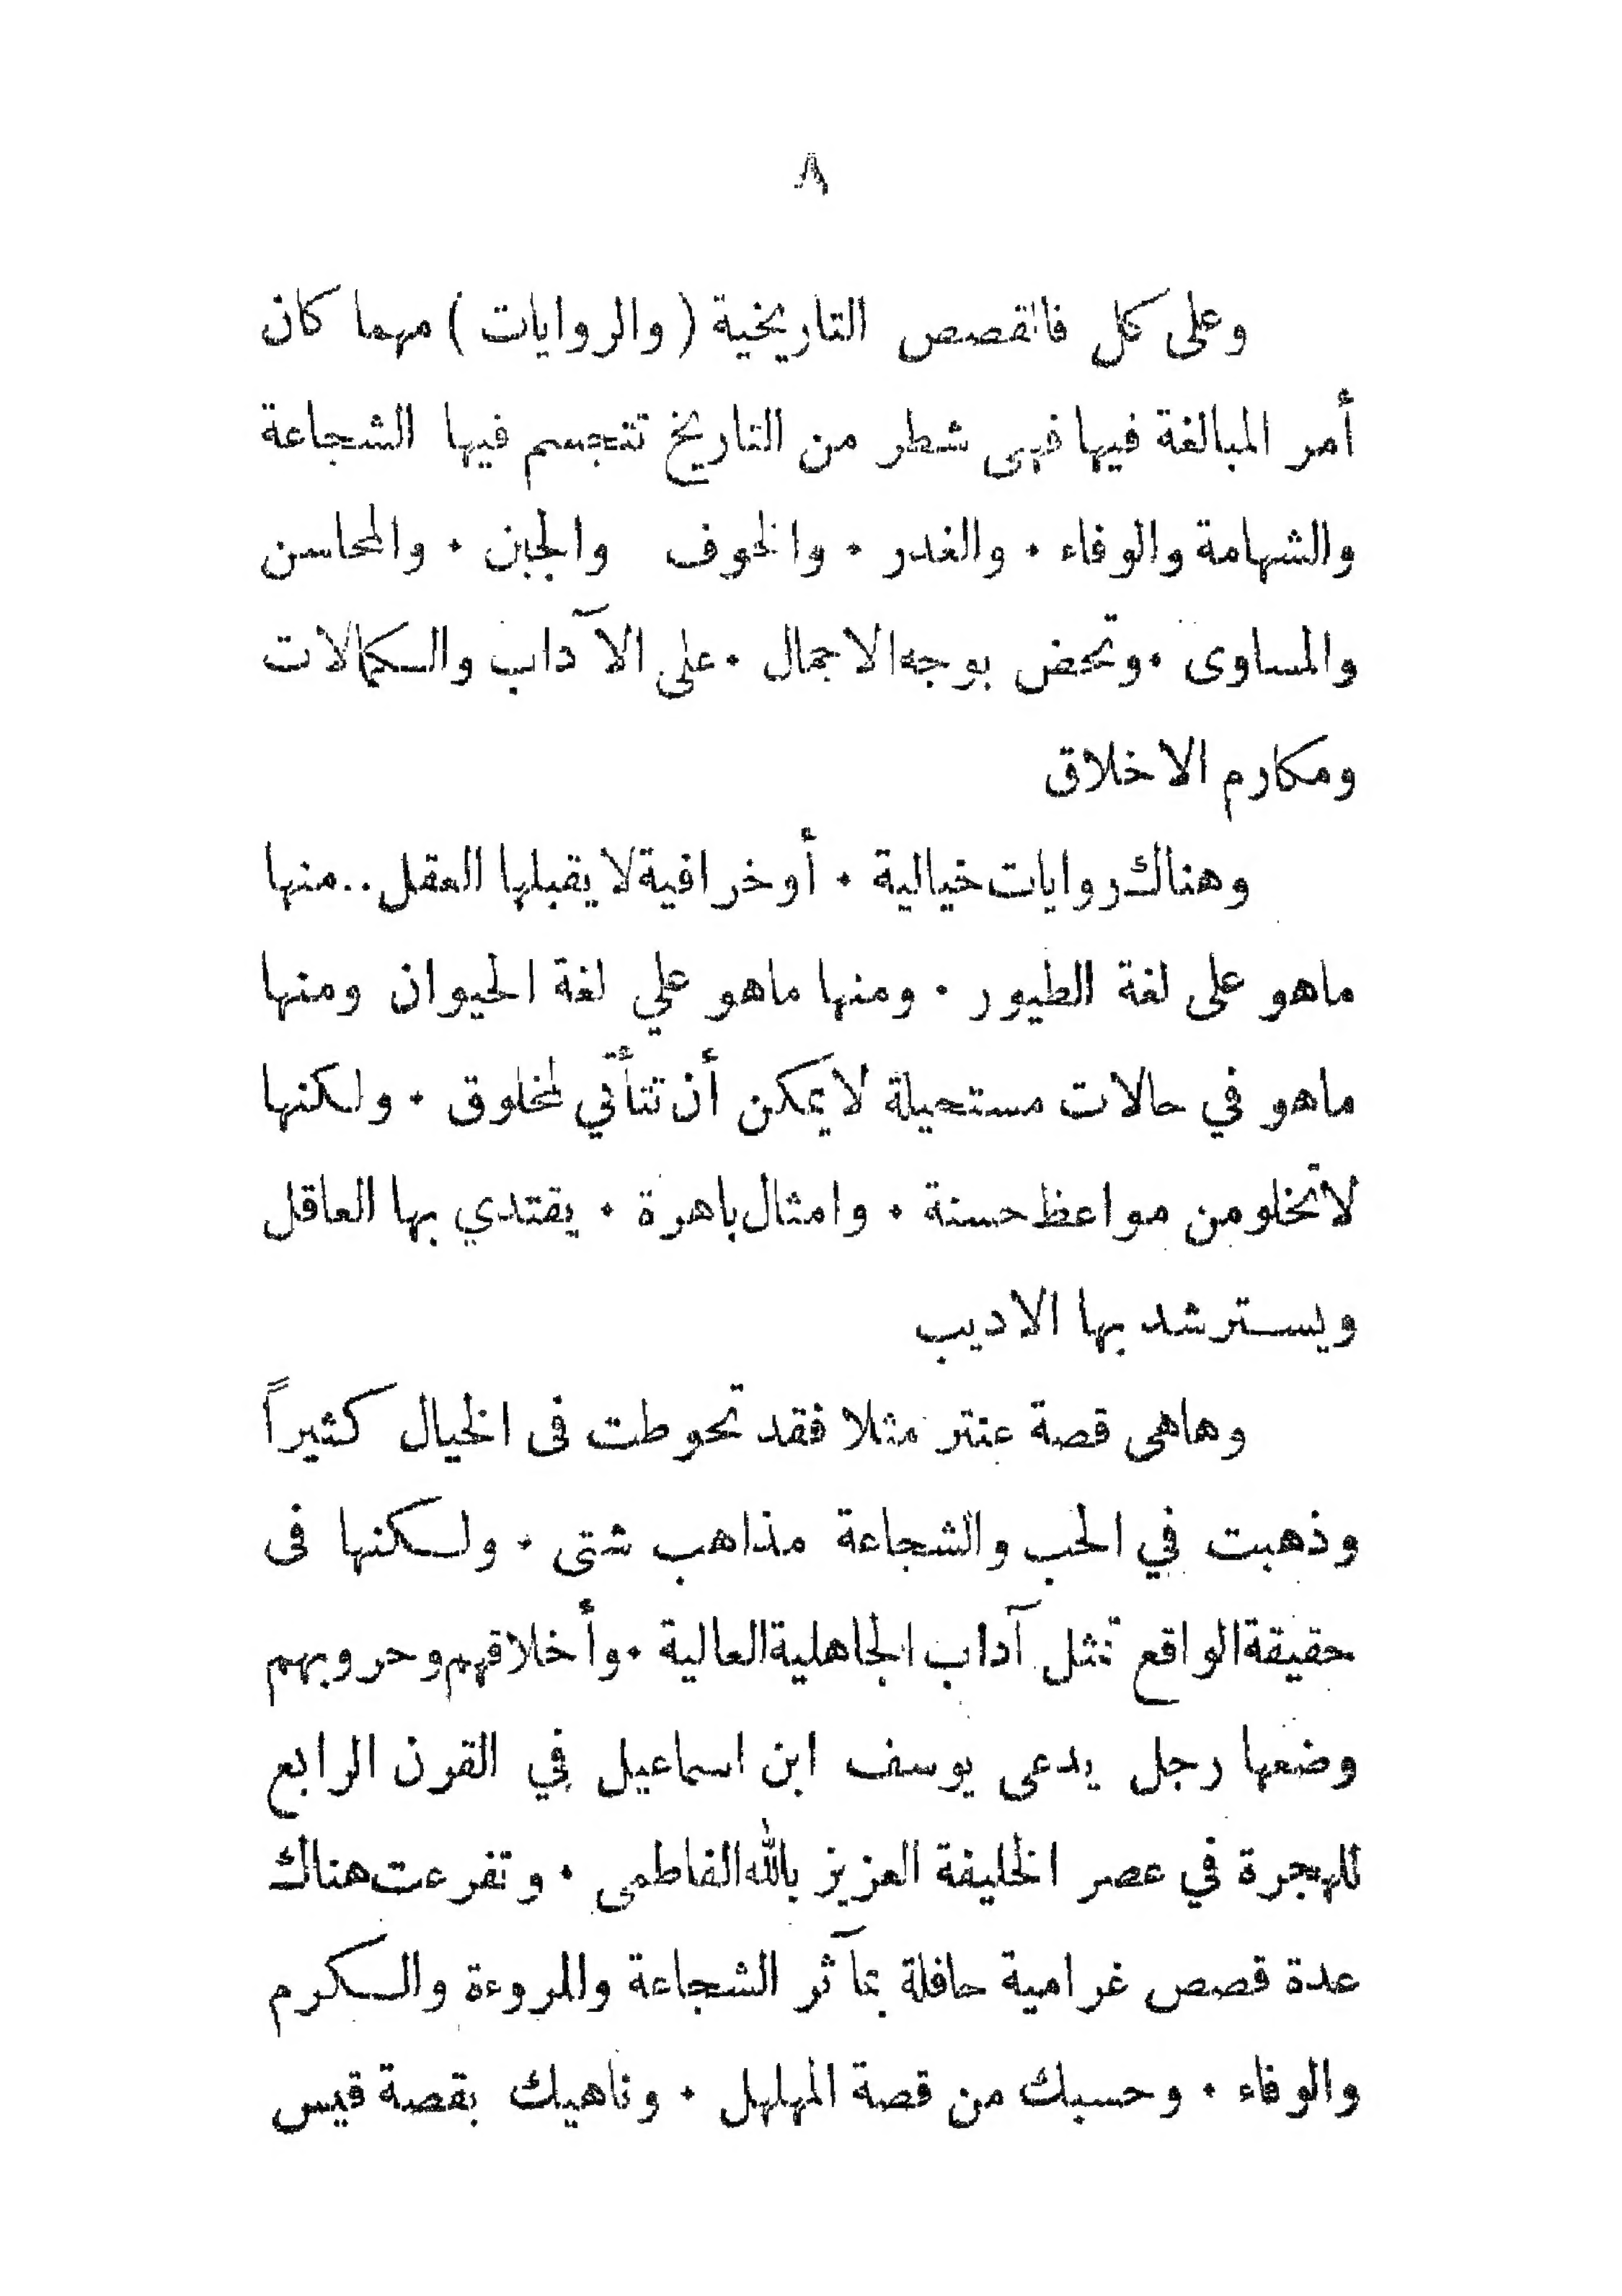 ٨
وعلى كل فالقصص التاريخية ( والروايات ) مهما كان
أمر المبالغة فيها فهى شطر من التاريخ تتجسم فيها الشجاعة
والشهامة والوفاء ٠ والغدر ٠ والخوف والجبن ٠ والمحاسن
والمساوى ٠ وتحض بوجه الاجمال ٠ على الآداب والكمالات
ومكارم الاخلاق
وهناك روايات خيالية ٠ أو خرافية لا يقبلها العقل .. منها
ماهو على لغة الطيور ٠ ومنها ماهو علي لغة الحيوان ومنها
ماهو في حالات مستحيلة لا يمكن أن تتأتي لمخلوق ٠ ولكنها
لا تخلو من مواعظ حسنة ٠ وامثال باهرة ٠ يقتدي بها العاقل
ويسترشد بها الاديب
وهاهى قصة عنتر مثلا فقد تحوطت فى الخيال كثيراً
وذهبت في الحب والشجاعة مذاهب شتى ٠ ولكنها فى
حقيقة الواقع تمثل آداب الجاهلية العالية ٠ وأخلاقهم وحروبهم
وضعها رجل يدعى يوسف ابن اسماعيل في القرن الرابع
للهجرة في عصر الخليفة العزيز بالله الفاطمى ٠ وتفرعت هناك
عدة قصص غرامية حافلة بمآثر الشجاعة والمروءة والكرم
والوفاء ٠ وحسبك من قصة المهلهل ٠ وناهيك بقصة قيس